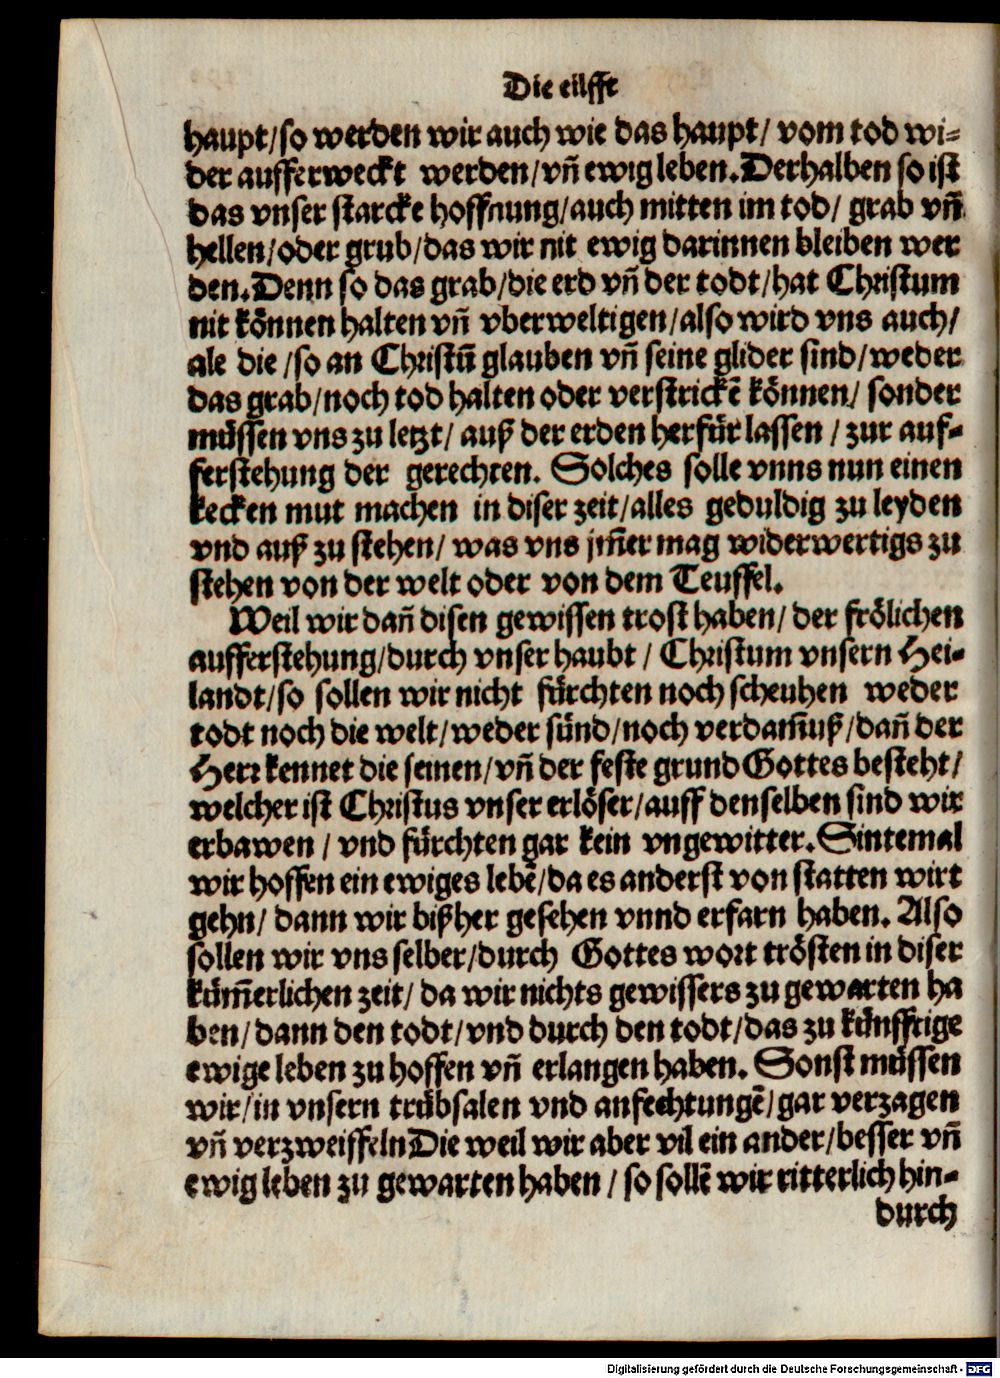 Die eilfft
haupt/so werden wir auch wie das haupt/ vom tod wi⸗
der aufferweckt werden/vñ ewig leben.Derhalben so ist
das vnser starcke hoffnung/auch mitten im tod/ grab vñ
hellen/oder grub/das wir nit ewig darinnen bleiben wer
den.Denn so das grab/die erd vñ der todt/hat Christum
nit können halten vñ vberweltigen/also wird vns auch/
ale die /so an Christũ glauben vñ seine glider sind/weder
das grab/noch tod halten oder verstrickẽ können/ sonder
müssen vns zu letzt/ auß der erden herfür lassen / zur auf⸗
ferstehung der gerechten. Solches solle vnns nun einen
kecken mut machen in diser zeit/alles geduldig zu leyden
vnd auß zu stehen/ was vns jm̃er mag widerwertigs zu
stehen von der welt oder von dem Teuffel.
Weil wir dañ disen gewissen trost haben/ der frölichen
aufferstehung/durch vnser haubt / Christum vnsern Hei⸗
landt/so sollen wir nicht fürchten noch scheuhen weder
todt noch die welt/weder sünd/noch verdam̃uß/dañ der
Herr kennet die seinen/vñ der feste grund Gottes besteht/
welcher ist Christus vnser erlöser/auff denselben sind wir
erbawen / vnd fürchten gar kein vngewitter.Sintemal
wir hoffen ein ewiges lebẽ/da es anderst von statten wirt
gehn/ dann wir bißher gesehen vnnd erfarn haben. Also
sollen wir vns selber/durch Gottes wort trösten in diser
küm̃erlichen zeit/ da wir nichts gewissers zu gewarten ha
ben/dann den todt/vnd durch den todt/das zu künfftige
ewige leben zu hoffen vñ erlangen haben. Sonst müssen
wir/in vnsern trübsalen vnd anfechtungẽ/gar verzagen
vñ verzweiffeln Die weil wir aber vil ein ander/besser vñ
ewig leben zu gewarten haben / so sollẽ wir ritterlich hin⸗
durch
Digitalisierung gefördert durch die Deutsche Forschungsgemeinschaft - DFG